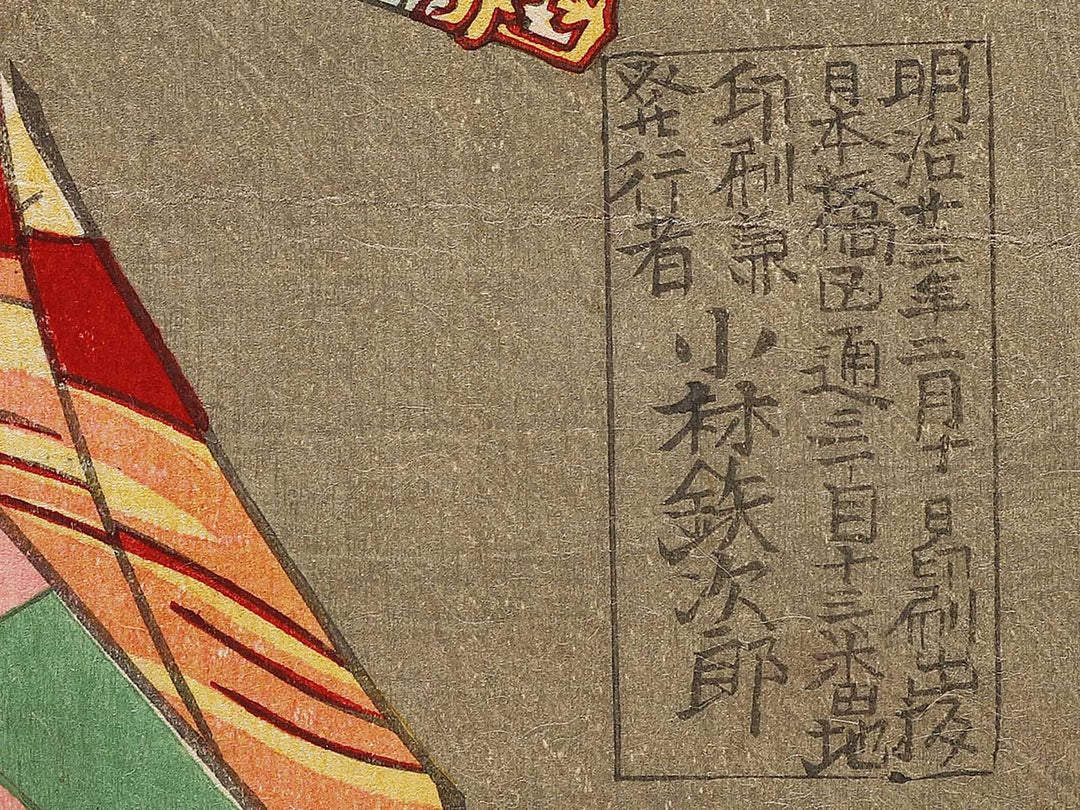 明治廿三年二月十日印刷出版
日本橋区通三丁目十三番地
印刷兼
発行者
小林鉄次郎